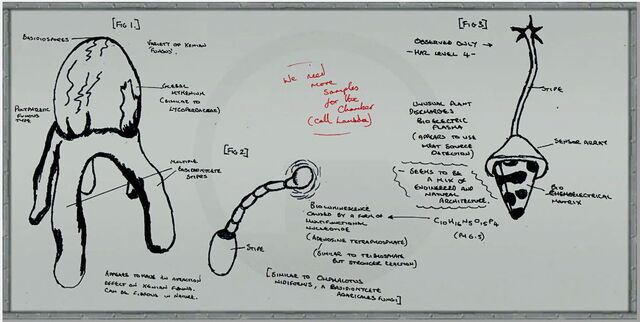 [FIG 1.]
BASIDIOSPORES
VARIETY OF XENIAN
"FUNGUS".
GLEBAL
HYMENIUM
(SIMILAR TO
LYCOPERDACEAE)
FUNGUS
TYPE
MULTIPLE
BASIDIOMYCETE
STIPES
APPEARS TO HAVE AN ATTRACTION
EFFECT ON XENIAN FAUNA.
CAN BE FIBROUS IN NATURE.
We need
more
samples
for the
Chamber
(call Lambda)
[FIG 2.]
STIPE
BIOLUMINESCENCE
CAUSED BY A FORM OF
MULTIFUNCTIONAL
NUCLEOTIDE
(ADENOSINE TETRAPHOSPHATE)
(SIMILAR TO TRIPHOSPHATE
BUT STRONGER REACTION)
[SIMILAR TO OMPHALOTUS
NIDIFORMIS, A BASIDIOMYCETE
AGARICALES FUNGI]
[FIG 3.]
OBSERVED ONLY
- HAR LEVEL 4 -
STIPE
UNUSUAL PLANT
DISCHARGES
BIOELECTRIC
PLASMA
(APPEARS TO USE
HEAT SOURCE
DETECTION)
SENSOR ARRAY
SEEMS TO BE
A MIX OF
ENGINEERED AND
NATURAL
ARCHITECTURE.
BIO
CHEMOELECTRICAL
MATRIX
C10H16N5O15P4